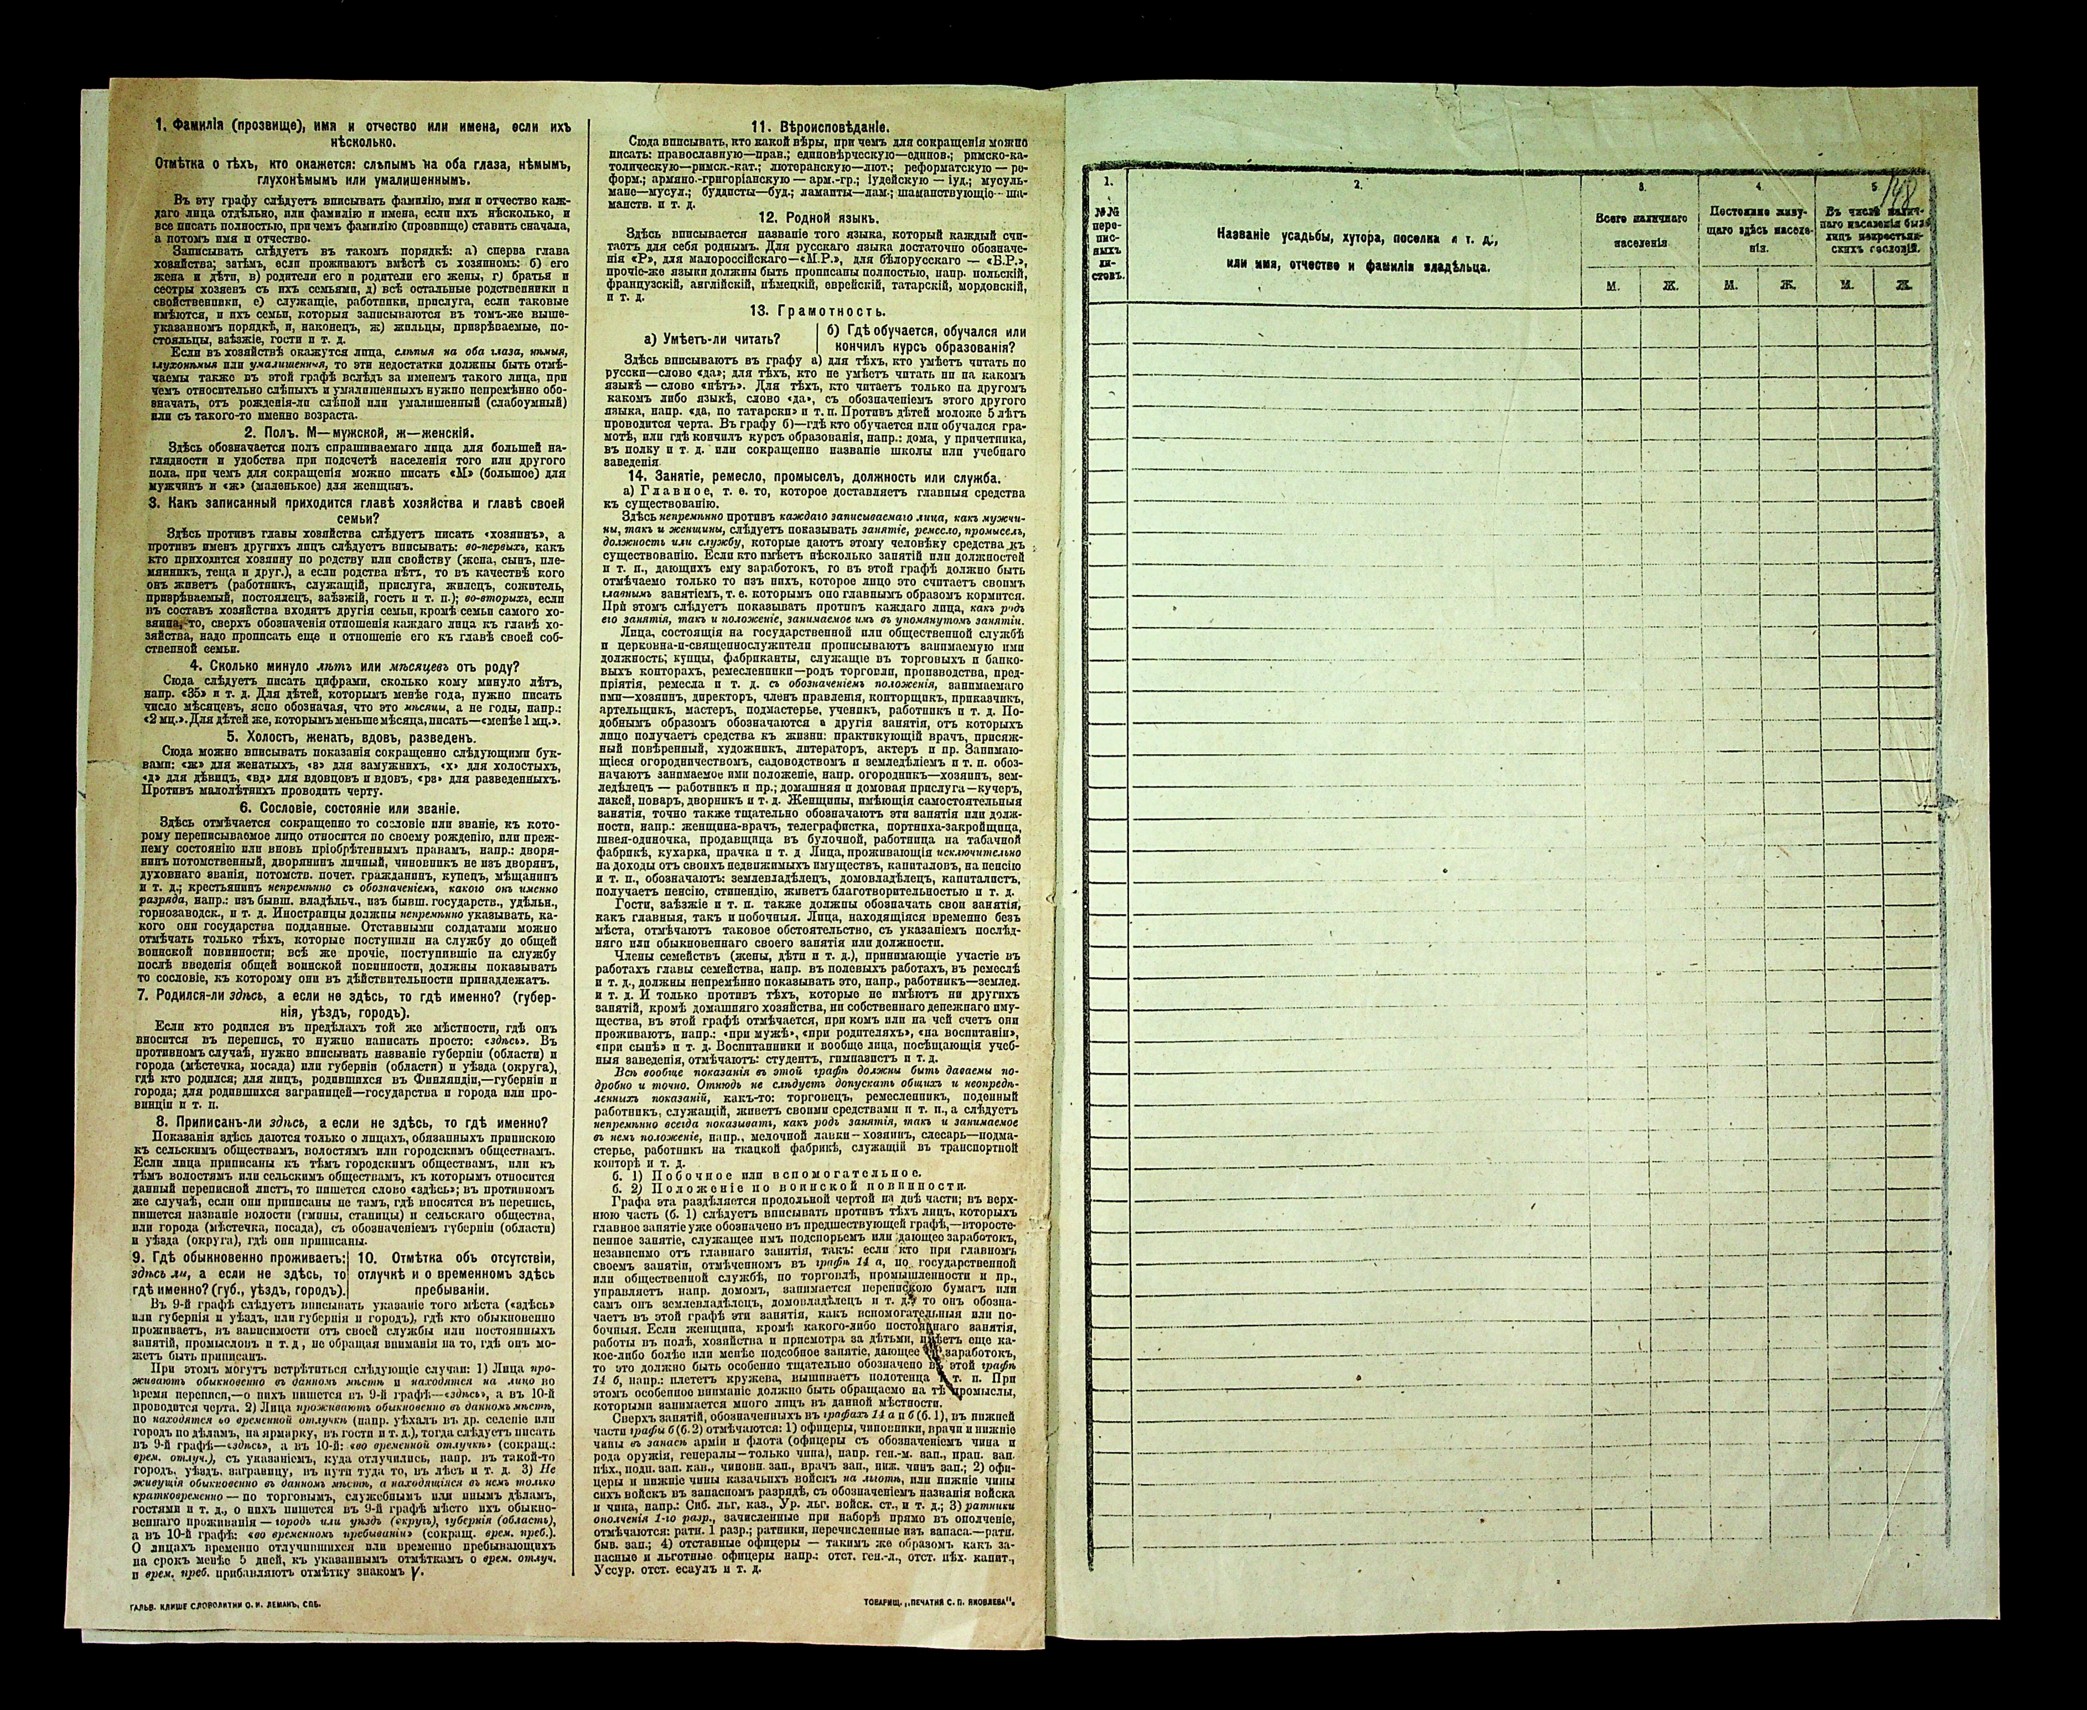 1. Фамилія (прозвище), имя и отчество или имена, если ихъ
нѣсколько.
Отмѣтка о тѣхъ, кто окажется: слѣпымъ на оба глаза, нѣмымъ,
глухонѣмымъ или умалишеннымъ.
Въ эту графу слѣдуетъ вписывать фамилію, имя и отчество каж-
даго лица отдѣльно, или фамилію и имена, если ихъ нѣсколько, и
все писать полностью, при чемъ фамилію (прозвище) ставить сначала,
а потомъ имя и отчество.
Записывать слѣдуетъ въ такомъ порядкѣ: а) сперва глава
хозяйства; затѣмъ, если проживаютъ вмѣстѣ съ хозяиномъ: б) его
жена и дѣти, в) родители его и родители его жены, г) братья и
сестры хозяевъ съ ихъ семьями, д) всѣ остальные родственники и
свойственники, е) служащіе, работники, прислуга, если таковые
имѣются, и ихъ семьи, которыя записываются въ томъ-же выше-
указанномъ порядкѣ, и, наконецъ, ж) жильцы, призрѣваемые, по-
стояльцы, заѣзжіе, гости и т. д.
Если въ хозяйствѣ окажутся лица, слѣпыя на оба глаза, нѣмыя,
глухонѣмыя или умалишенныя, то эти недостатки должны быть отмѣ-
чаемы также въ этой графѣ вслѣдъ за именемъ такого лица, при
чемъ относительно слѣпыхъ и умалишенныхъ нужно непремѣнно обо-
значать, отъ рожденія-ли слѣпой или умалишенный (слабоумный)
или съ такого-то именно возраста.
2. Полъ. М—мужской, ж—женскій.
Здѣсь обозначается полъ спрашиваемаго лица для большей на-
глядности и удобства при подсчетѣ населенія того или другого
пола, при чемъ для сокращенія можно писать «М» (большое) для
мужчинъ и «ж» (маленькое) для женщинъ.
3. Какъ записанный приходится главѣ хозяйства и главѣ своей
семьи?
Здѣсь противъ главы хозяйства слѣдуетъ писать «хозяинъ», а
противъ именъ другихъ лицъ слѣдуетъ вписывать: во-первыхъ, какъ
кто приходится хозяину по родству или свойству (жена, сынъ, пле-
мянникъ, теща и друг.), а если родства нѣтъ, то въ качествѣ кого
онъ живетъ (работникъ, служащій, прислуга, жилецъ, сожитель,
призрѣваемый, постоялецъ, заѣзжій, гость и т. п.); во-вторыхъ, если
въ составъ хозяйства входятъ другія семьи, кромѣ семьи самого хо-
зяина,-то, сверхъ обозначенія отношенія каждаго лица къ главѣ хо-
зяйства, надо прописать еще и отношеніе его къ главѣ своей соб-
ственной семьи.
4. Сколько минуло лѣтъ или мѣсяцевъ отъ роду?
Сюда слѣдуетъ писать цифрами, сколько кому минуло лѣтъ,
напр. «35» и т. д. Для дѣтей, которымъ менѣе года, нужно писать
число мѣсяцевъ, ясно обозначая, что это мѣсяцы, а не годы, напр.:
«2 мц.». Для дѣтей же, которымъ меньше мѣсяца, писать—«менѣе 1 мц.».
5. Холостъ, женатъ, вдовъ, разведенъ.
Сюда можно вписывать показанія сокращенно слѣдующими бук-
вами: «ж» для женатыхъ, «з» для замужнихъ, «х» для холостыхъ,
«д» для дѣвицъ, «вд» для вдовцовъ и вдовъ, «рз» для разведенныхъ.
Противъ малолѣтнихъ проводить черту.
6. Сословіе, состояніе или званіе.
Здѣсь отмѣчается сокращенно то сословіе или званіе, къ кото-
рому переписываемое лицо относится по своему рожденію, или преж-
нему состоянію или вновь пріобрѣтеннымъ правамъ, напр.: дворя-
нинъ потомственный, дворянинъ личный, чиновникъ не изъ дворянъ,
духовнаго званія, потомств. почет. гражданинъ, купецъ, мѣщанинъ
и т. д.; крестьянинъ непремѣнно съ обозначеніемъ, какого онъ именно
разряда, напр.: изъ бывш. владѣльч., изъ бывш. государств., удѣльн.,
горнозаводск., и т. д. Иностранцы должны непремѣнно указывать, ка-
кого они государства подданные. Отставными солдатами можно
отмѣчать только тѣхъ, которые поступили на службу до общей
воинской повинности; всѣ же прочіе, поступившіе на службу
послѣ введенія общей воинской повинности, должны показывать
то сословіе, къ которому они въ дѣйствительности принадлежатъ.
7. Родился-ли здѣсь, а если не здѣсь, то гдѣ именно? (губер-
нія, уѣздъ, городъ).
Если кто родился въ предѣлахъ той же мѣстности, гдѣ онъ
вносится въ перепись, то нужно написать просто: «здѣсь». Въ
противномъ случаѣ, нужно вписывать названіе губерніи (области) и
города (мѣстечка, посада) или губерніи (области) и уѣзда (округа),
гдѣ кто родился; для лицъ, родившихся въ Финляндіи,—губерніи и
города; для родившихся заграницей—государства и города или про-
винціи и т. п.
8. Приписанъ-ли здѣсь, а если не здѣсь, то гдѣ именно?
Показанія здѣсь даются только о лицахъ, обязанныхъ припискою
къ сельскимъ обществамъ, волостямъ или городскимъ обществамъ.
Если лица приписаны къ тѣмъ городскимъ обществамъ, или къ
тѣмъ волостямъ или сельскимъ обществамъ, къ которымъ относится
данный переписной листъ, то пишется слово «здѣсь»; въ противномъ
же случаѣ, если они приписаны не тамъ, гдѣ вносятся въ перепись,
пишется названіе волости (гмины, станицы) и сельскаго общества,
или города (мѣстечка, посада), съ обозначеніемъ губерніи (области)
и уѣзда (округа), гдѣ они приписаны.
9. Гдѣ обыкновенно проживаетъ:
здѣсь ли, а если не здѣсь, то
гдѣ именно? (губ., уѣздъ, городъ).
10. Отмѣтка объ отсутствіи,
отлучкѣ и о временномъ здѣсь
пребываніи.
Въ 9-й графѣ слѣдуетъ вписывать указаніе того мѣста («здѣсь»
или губернія и уѣздъ, или губернія и городъ), гдѣ кто обыкновенно
проживаетъ, въ зависимости отъ своей службы или постоянныхъ
занятій, промысловъ и т. д, не обращая вниманія на то, гдѣ онъ мо-
жетъ быть приписанъ.
При этомъ могутъ встрѣтиться слѣдующіе случаи: 1) Лица про-
живаютъ обыкновенно въ данномъ мѣстѣ и находятся на лицо во
время переписи,—о нихъ пишется въ 9-й графѣ—«здѣсь», а въ 10-й
проводится черта. 2) Лица проживаютъ обыкновенно въ данномъ мѣстѣ,
но находятся во временной отлучкѣ (напр. уѣхалъ въ др. селеніе или
городъ по дѣламъ, на ярмарку, въ гости и т. д.), тогда слѣдуетъ писать
въ 9-й графѣ—«здѣсь», а въ 10-й: «во временной отлучкѣ» (сокращ.:
врем. отлуч.), съ указаніемъ, куда отлучились, напр. въ такой-то
городъ, уѣздъ, заграницу, въ пути туда то, въ лѣсъ и т. д. 3) Не
живущія обыкновенно въ данномъ мѣстѣ, а находящіяся въ немъ только
кратковременно — по торговымъ, служебнымъ или инымъ дѣламъ,
гостями и т. д., о нихъ пишется въ 9-й графѣ мѣсто ихъ обыкно-
веннаго проживанія — городъ или уѣздъ (округъ), губернія (область),
а въ 10-й графѣ: «во временномъ пребываніи» (сокращ. врем. преб.).
О лицахъ временно отлучившихся или временно пребывающихъ
на срокъ менѣе 5 дней, къ указаннымъ отмѣткамъ о врем. отлуч.
и врем. преб. прибавляютъ отмѣтку знакомъ V.
ГАЛЬВ. КЛИШЕ СЛОВОЛИТНИ О. И. ЛЕМАНЪ, СПБ.
11. Вѣроисповѣданіе.
Сюда вписывать, кто какой вѣры, при чемъ для сокращенія можно
писать: православную—прав.; единовѣрческую—единов.; римско-ка-
толическую—римск.-кат.; лютеранскую—лют.; реформатскую — ре-
форм.; армяно-григоріанскую — арм.-гр.; іудейскую — іуд.; мусуль-
мане—мусул.; буддисты—буд.; ламаиты—лам.; шаманствующіе—ша-
манств. и т. д.
12. Родной языкъ.
Здѣсь вписывается названіе того языка, который каждый счи-
таетъ для себя роднымъ. Для русскаго языка достаточно обозначе-
нія «Р», для малороссійскаго—«М.Р.», для бѣлорусскаго — «Б.Р.»,
прочіе-же языки должны быть прописаны полностью, напр. польскій,
французскій, англійскій, нѣмецкій, еврейскій, татарскій, мордовскій,
и т. д.
13. Грамотность.
а) Умѣетъ-ли читать?
б) Гдѣ обучается, обучался или
кончилъ курсъ образованія?
Здѣсь вписываютъ въ графу а) для тѣхъ, кто умѣетъ читать по
русски—слово «да»; для тѣхъ, кто не умѣетъ читать ни на какомъ
языкѣ — слово «нѣтъ». Для тѣхъ, кто читаетъ только на другомъ
какомъ либо языкѣ, слово «да», съ обозначеніемъ этого другого
языка, напр. «да, по татарски» и т. п. Противъ дѣтей моложе 5 лѣтъ
проводится черта. Въ графу б)—гдѣ кто обучается или обучался гра-
мотѣ, или гдѣ кончилъ курсъ образованія, напр.: дома, у причетника,
въ полку и т. д. или сокращенно названіе школы или учебнаго
заведенія.
14. Занятіе, ремесло, промыселъ, должность или служба.
а) Главное, т. е. то, которое доставляетъ главныя средства
къ существованію.
Здѣсь непремѣнно противъ каждаго записываемаго лица, какъ мужчи-
ны, такъ и женщины, слѣдуетъ показывать занятіе, ремесло, промыселъ,
должность или службу, которые даютъ этому человѣку средства къ
существованію. Если кто имѣетъ нѣсколько занятій или должностей
и т. п., дающихъ ему заработокъ, то въ этой графѣ должно быть
отмѣчаемо только то изъ нихъ, которое лицо это считаетъ своимъ
главнымъ занятіемъ, т. е. которымъ оно главнымъ образомъ кормится.
При этомъ слѣдуетъ показывать противъ каждаго лица, какъ родъ
его занятія, такъ и положеніе, занимаемое имъ въ упомянутомъ занятіи.
Лица, состоящія на государственной или общественной службѣ
и церковно-и-священнослужители прописываютъ занимаемую ими
должность; купцы, фабриканты, служащіе въ торговыхъ и банко-
выхъ конторахъ, ремесленники—родъ торговли, производства, пред-
пріятія, ремесла и т. д. съ обозначеніемъ положенія, занимаемаго
ими—хозяинъ, директоръ, членъ правленія, конторщикъ, приказчикъ,
артельщикъ, мастеръ, подмастерье, ученикъ, работникъ и т. д. По-
добнымъ образомъ обозначаются и другія занятія, отъ которыхъ
лицо получаетъ средства къ жизни: практикующій врачъ, присяж-
ный повѣренный, художникъ, литераторъ, актеръ и пр. Занимаю-
щіеся огородничествомъ, садоводствомъ и земледѣліемъ и т. п. обоз-
начаютъ занимаемое ими положеніе, напр. огородникъ—хозяинъ, зем-
ледѣлецъ — работникъ и пр.; домашняя и домовая прислуга—кучеръ,
лакей, поваръ, дворникъ и т. д. Женщины, имѣющія самостоятельныя
занятія, точно также тщательно обозначаютъ эти занятія или долж-
ности, напр.: женщина-врачъ, телеграфистка, портниха-закройщица,
швея-одиночка, продавщица въ булочной, работница на табачной
фабрикѣ, кухарка, прачка и т. д Лица, проживающія исключительно
на доходы отъ своихъ недвижимыхъ имуществъ, капиталовъ, на пенсію
и т. п., обозначаютъ: землевладѣлецъ, домовладѣлецъ, капиталистъ,
получаетъ пенсію, стипендію, живетъ благотворительностью и т. д.
Гости, заѣзжіе и т. п. также должны обозначать свои занятія,
какъ главныя, такъ и побочныя. Лица, находящіяся временно безъ
мѣста, отмѣчаютъ таковое обстоятельство, съ указаніемъ послѣд-
няго или обыкновеннаго своего занятія или должности.
Члены семействъ (жены, дѣти и т. д.), принимающіе участіе въ
работахъ главы семейства, напр. въ полевыхъ работахъ, въ ремеслѣ
и т. д., должны непремѣнно показывать это, напр., работникъ—землед.
и т. д. И только противъ тѣхъ, которые не имѣютъ ни другихъ
занятій, кромѣ домашняго хозяйства, ни собственнаго денежнаго иму-
щества, въ этой графѣ отмѣчается, при комъ или на чей счетъ они
проживаютъ, напр.: «при мужѣ», «при родителяхъ», «на воспитаніи»,
«при сынѣ» и т. д. Воспитанники и вообще лица, посѣщающія учеб-
ныя заведенія, отмѣчаютъ: студентъ, гимназистъ и т. д.
Всѣ вообще показанія въ этой графѣ должны быть даваемы по-
дробно и точно. Отнюдь не слѣдуетъ допускать общихъ и неопредѣ-
ленныхъ показаній, какъ-то: торговецъ, ремесленникъ, поденный
работникъ, служащій, живетъ своими средствами и т. п., а слѣдуетъ
непремѣнно всегда показывать, какъ родъ занятія, такъ и занимаемое
въ немъ положеніе, напр., мелочной лавки—хозяинъ, слесарь—подма-
стерье, работникъ на ткацкой фабрикѣ, служащій въ транспортной
конторѣ и т. д.
б. 1) Побочное или вспомогательное.
б. 2) Положеніе по воинской повинности.
Графа эта раздѣляется продольной чертой на двѣ части; въ верх-
нюю часть (б. 1) слѣдуетъ вписывать противъ тѣхъ лицъ, которыхъ
главное занятіе уже обозначено въ предшествующей графѣ,—второсте-
пенное занятіе, служащее имъ подспорьемъ или дающее заработокъ,
независимо отъ главнаго занятія, такъ: если кто при главномъ
своемъ занятіи, отмѣченномъ въ графѣ 14 а, по государственной
или общественной службѣ, по торговлѣ, промышленности и пр.,
управляетъ напр. домомъ, занимается перепискою бумагъ или
самъ онъ землевладѣлецъ, домовладѣлецъ и т. д., то онъ обозна-
чаетъ въ этой графѣ эти занятія, какъ вспомогательныя или по-
бочныя. Если женщина, кромѣ какого-либо постояннаго занятія,
работы въ полѣ, хозяйства и присмотра за дѣтьми, имѣетъ еще ка-
кое-либо болѣе или менѣе подсобное занятіе, дающее заработокъ,
то это должно быть особенно тщательно обозначено въ этой графѣ
14 б, напр.: плететъ кружева, вышиваетъ полотенца и т. п. При
этомъ особенное вниманіе должно быть обращаемо на тѣ промыслы,
которыми занимается много лицъ въ данной мѣстности.
Сверхъ занятій, обозначенныхъ въ графахъ 14 а и б (б. 1), въ нижней
части графы б (б. 2) отмѣчаются: 1) офицеры, чиновники, врачи и нижніе
чины въ запасѣ арміи и флота (офицеры съ обозначеніемъ чина и
рода оружія, генералы—только чина), напр. ген.-м. зап., прап. зап.
пѣх., подп. зап. кав., чиновн. зап., врачъ зап., ниж. чинъ зап.; 2) офи-
церы и нижніе чины казачьихъ войскъ на льготѣ, или нижніе чины
сихъ войскъ въ запасномъ разрядѣ, съ обозначеніемъ названія войска
и чина, напр.: Сиб. льг. каз., Ур. льг. войск. ст., и т. д.; 3) ратники
ополченія 1-го разр., зачисленные при наборѣ прямо въ ополченіе,
отмѣчаются: ратн. 1 разр.; ратники, перечисленные изъ запаса.—ратн.
быв. зап.; 4) отставные офицеры — такимъ же образомъ какъ за-
пасные и льготные офицеры напр.: отст. ген.-л., отст. пѣх. капит.,
Уссур. отст. есаулъ и т. д.
ТОВАРИЩ. „ПЕЧАТНЯ С. П. ЯКОВЛЕВА".
148
1.
№№
пере-
пис-
ныхъ
ли-
стовъ.
2.
Названіе усадьбы, хутора, поселка и т. д.,
или имя, отчество и фамилія владѣльца.
3.
Всего наличнаго
населенія
М. Ж.
4.
Постоянно живу-
щаго здѣсь населе-
нія.
М. Ж.
5.
Въ числѣ налич-
наго населенія было
лицъ некрестьян-
скихъ сословій.
М. Ж.